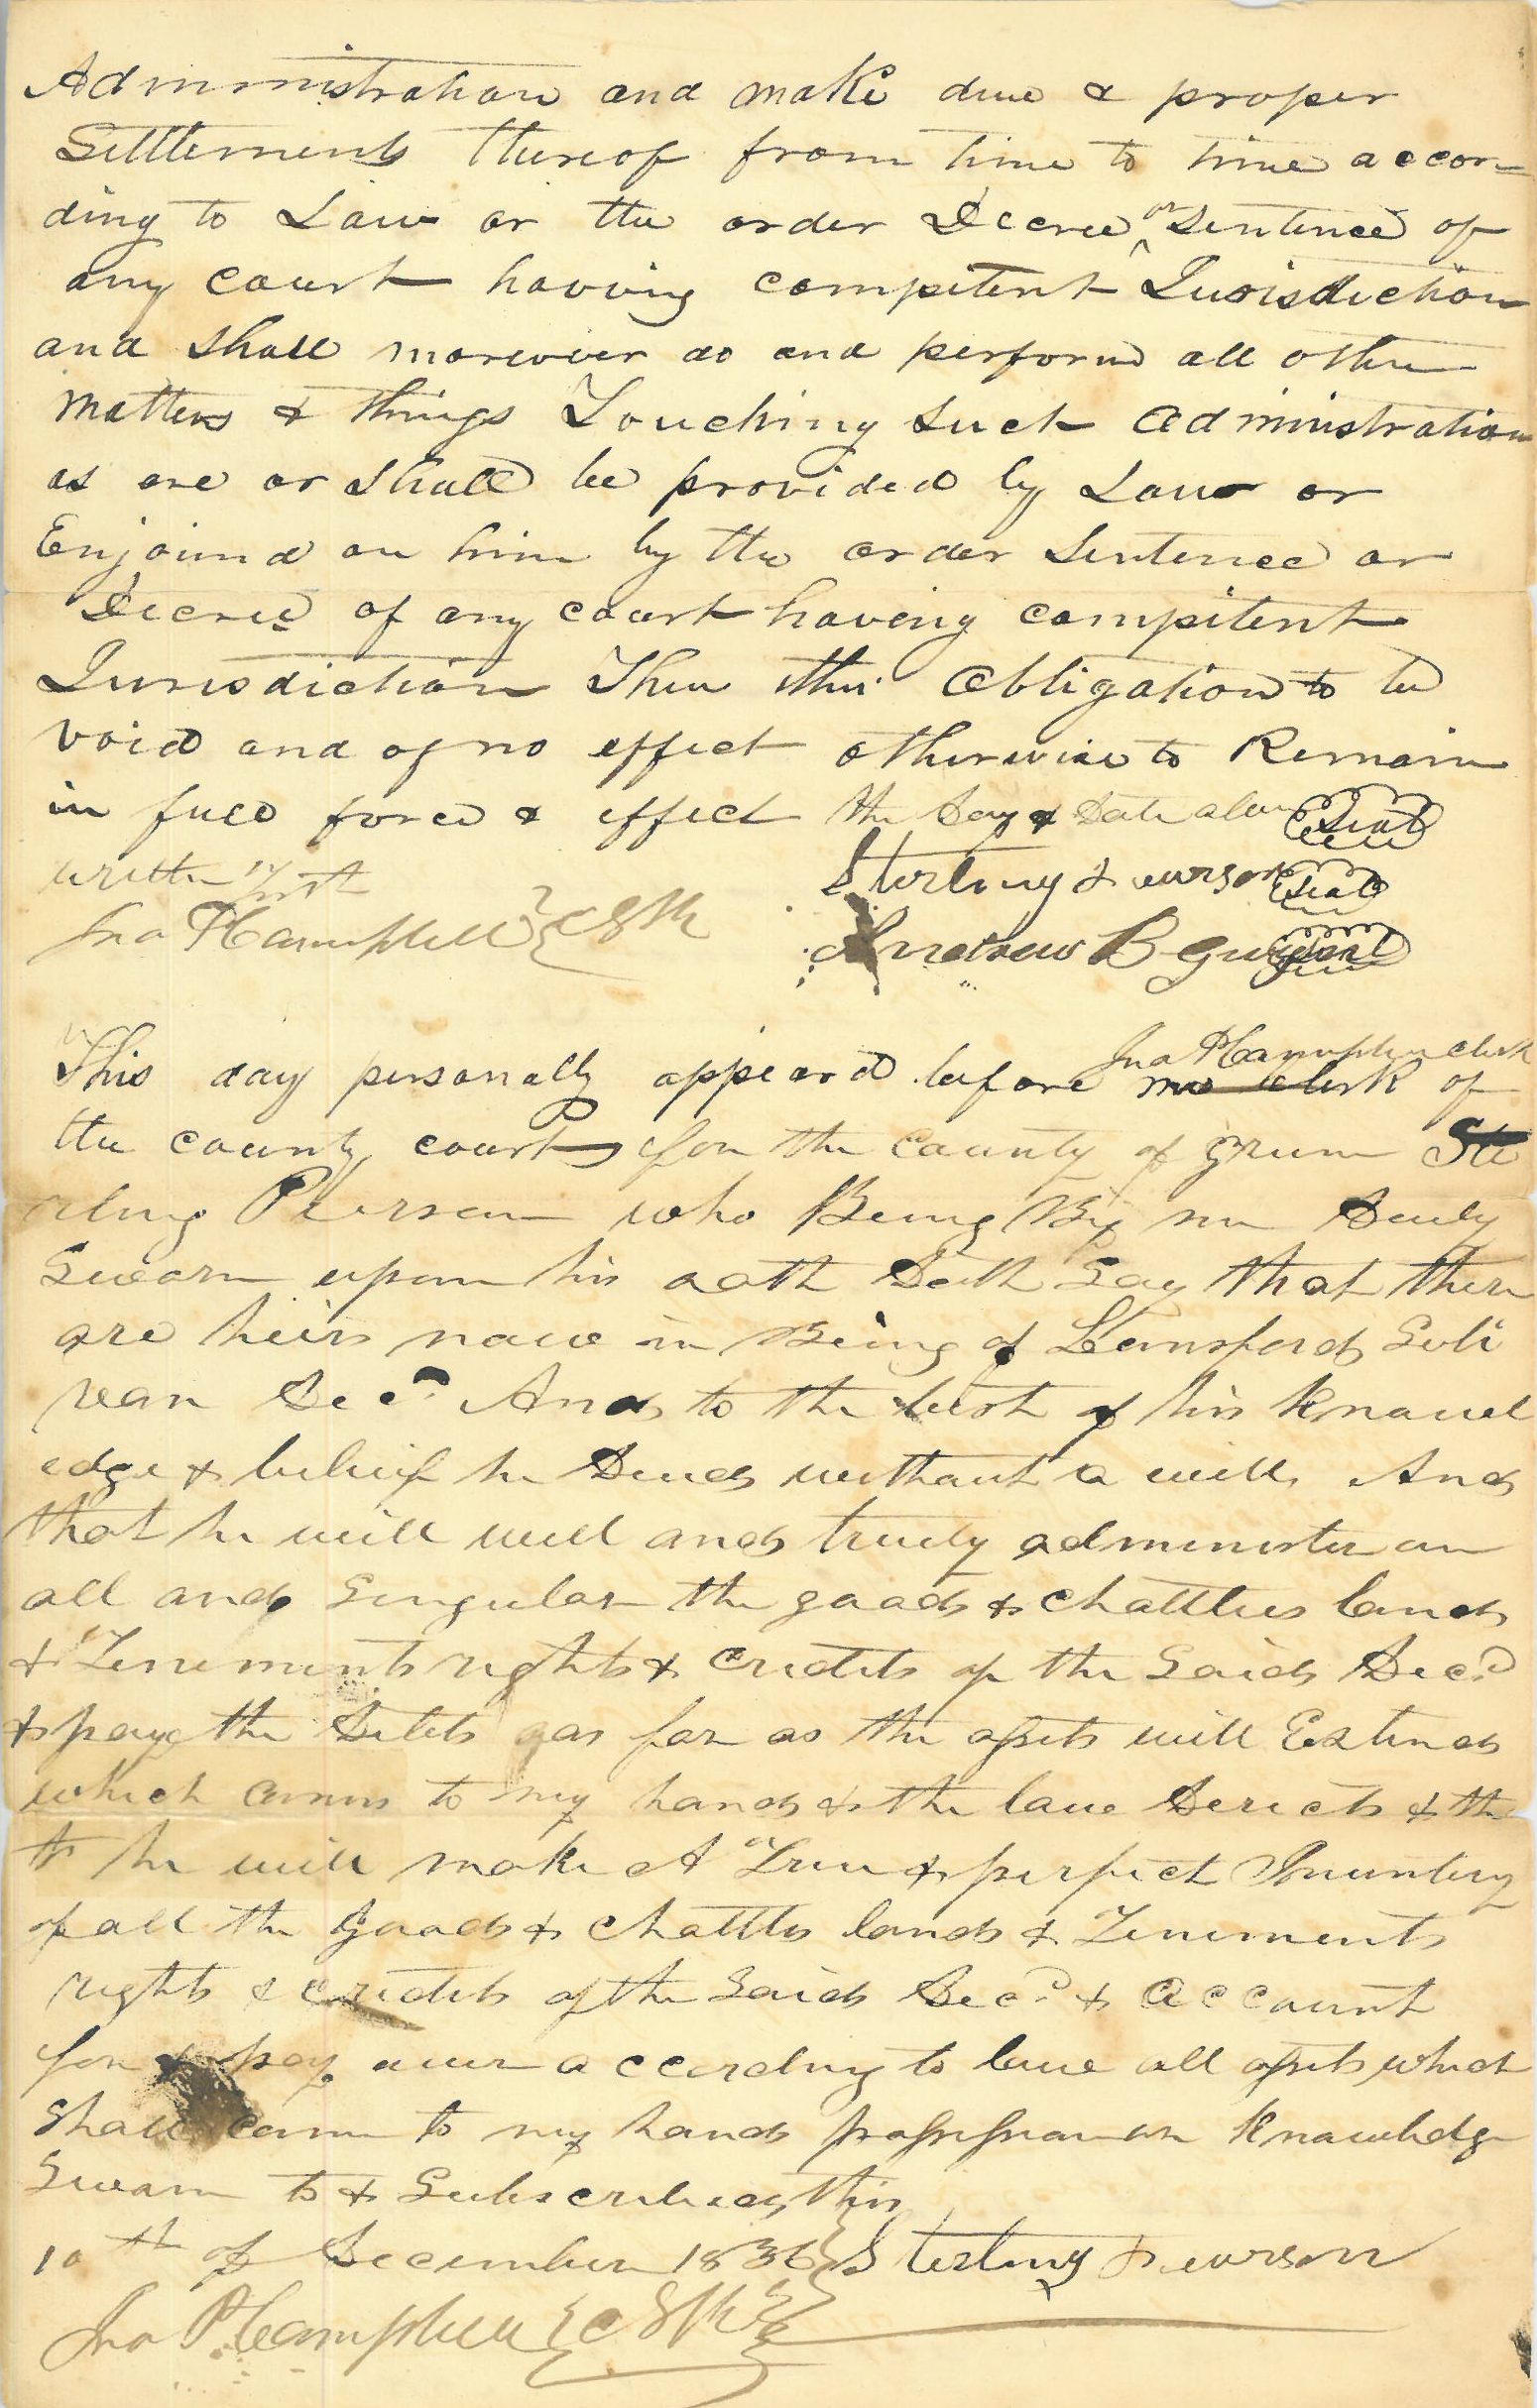 Administration and make due & proper
Settlements thereof from time to time accor=
ding to Law or the order Decree or Sentence of
any court having compitent Jurisdiction
and shall moreover do and perform all other
matters & things Touching such administration
as are or shall be provided by Law or
Enjoined on him by the order Sentence or
Decree of any court having compitent
Jurisdiction Then this Obligation to be
void and of no effect otherwise to Remain
in full force & effect the day & date above
written Test
Seal
Sterling Pearson Seal
Jno P Campbell C
Andrew B Seal
This day personally appeard before me clerk of
Jno P Campbell clerk
the county court for the County of Green Ste
rling Pearson who Being By me Duly
Sworn upon his oath Doth Say that there
are heirs now in Being of Lansford Suli
van Decd. And to the best of his Knowl
edge & belief he Died without a will And
that he will well and truly administer on
all and Singular the goods & chattles lands
& Tenements rights & credits of the Said Decd
& pay the Debts as far as the assets will Extend
which comes to my hands & the law Derects & th
t he will make A True & perfect Inventory
of all the goods & chattles lands & Tenements
rights & credits of the Said Decd. & account
for & pay over according to law all assets which
Shall come to my hands possession or Knowledge
Sworn to & Subscribed this
10th of December 1836 Sterling Pearson
Jno P Campbell C